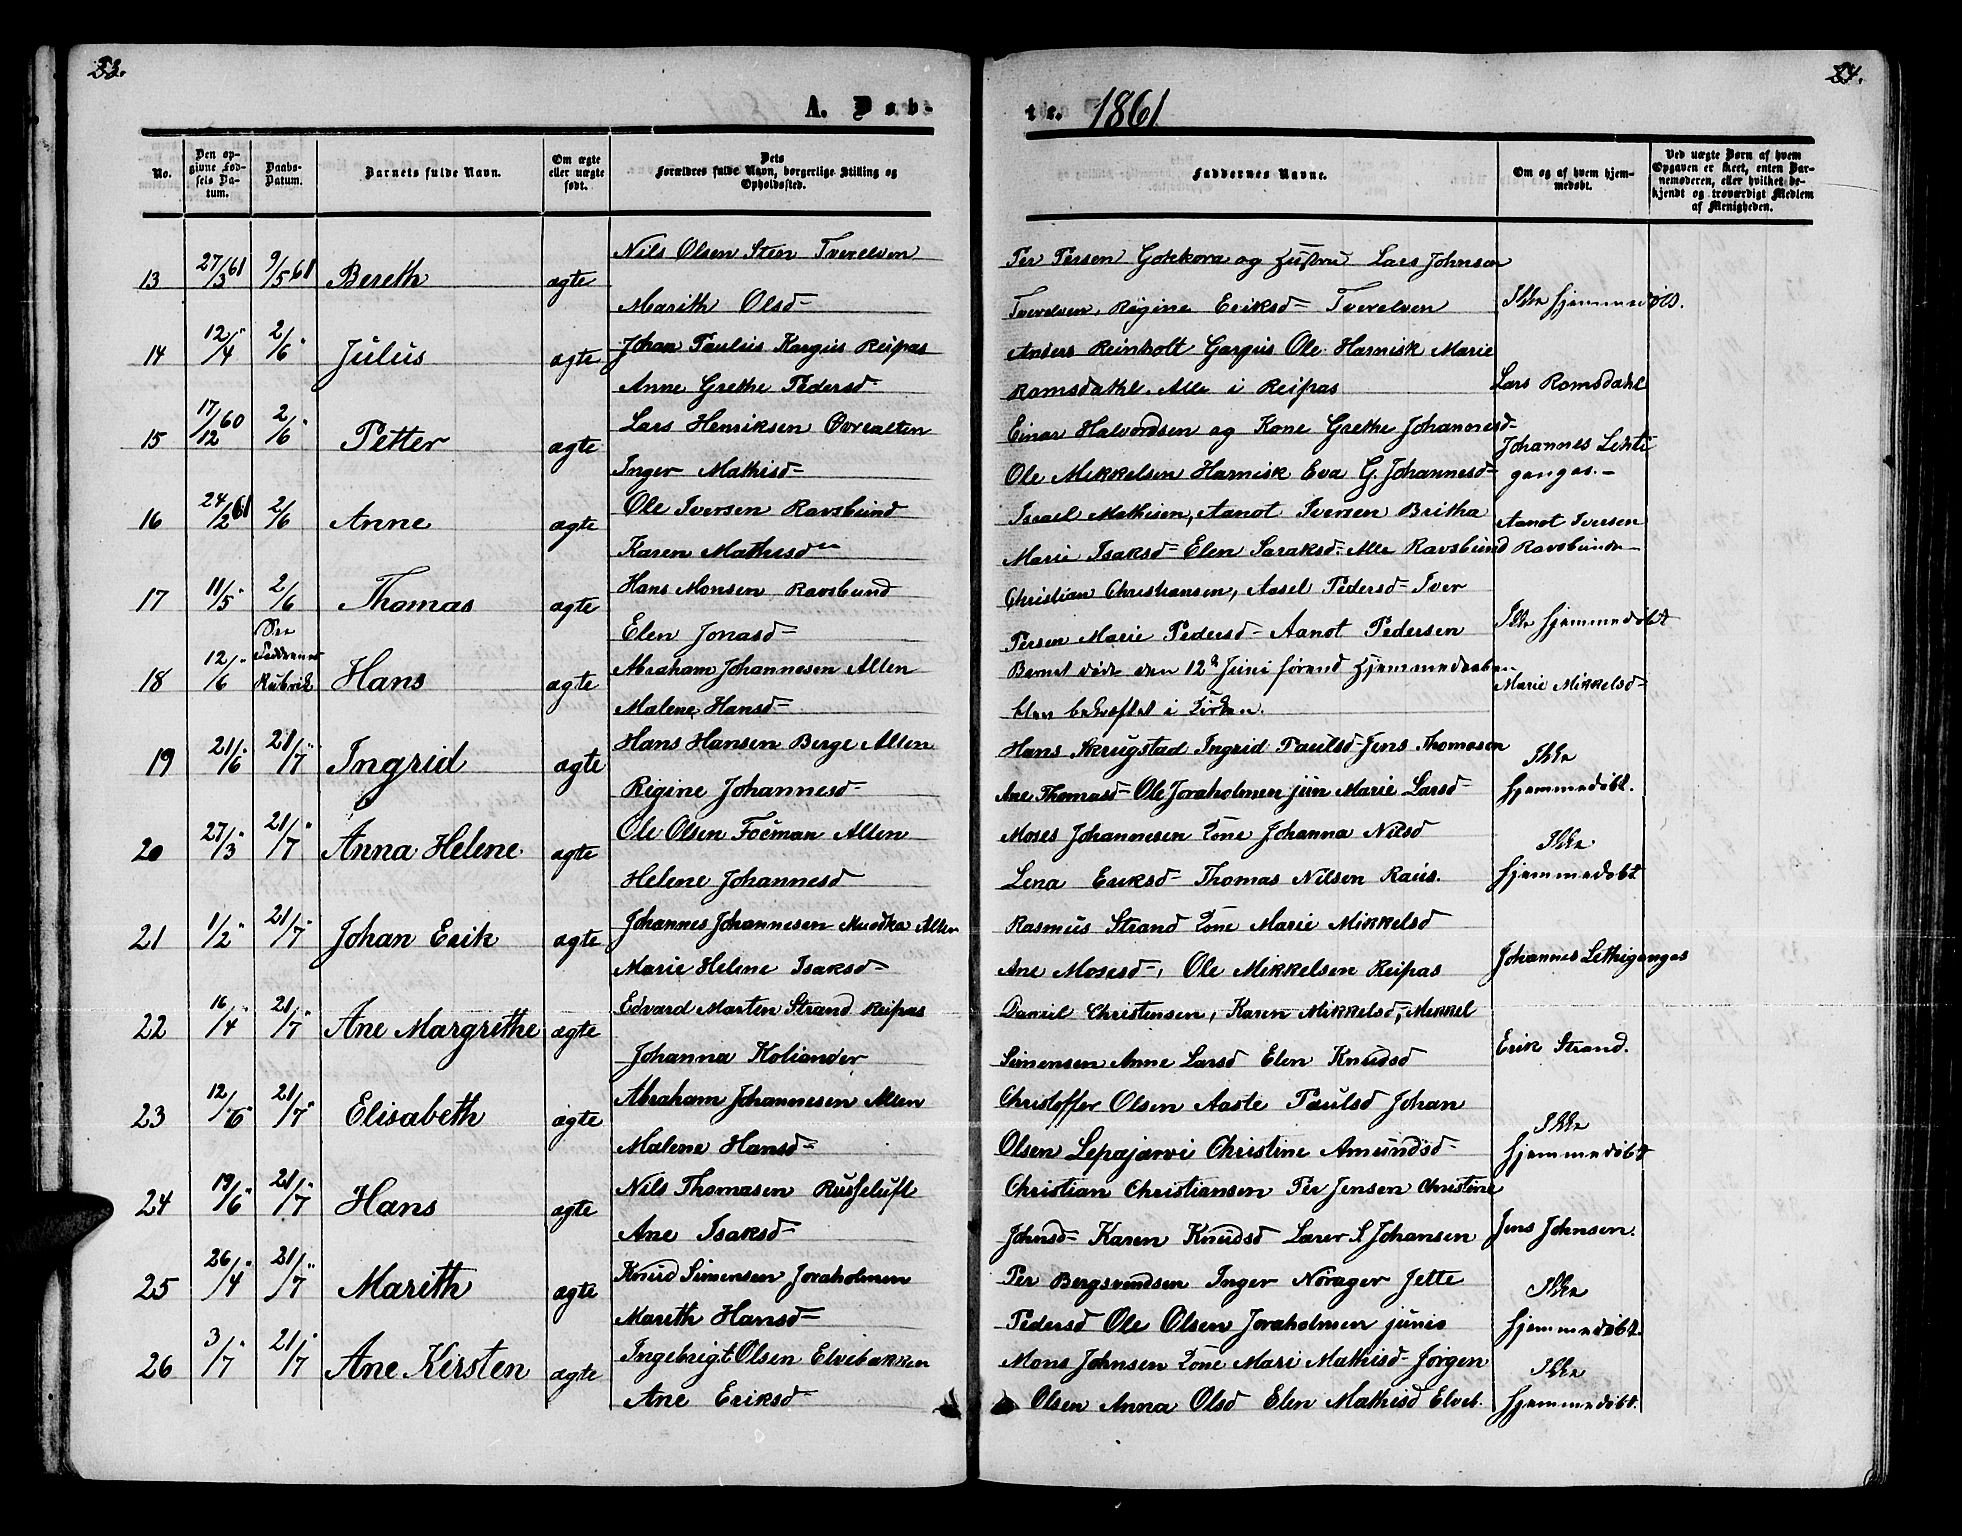 23.
24.
A. Daab-
te. 1861
No.
Den op-
givne Fød-
sels Da-
tum.
Daabs-
Datum.
Barnets fulde Navn.
Om ægte
eller uægte
født.
Dets
Forældres fulde Navn, borgerlige Stilling og
Opholdssted.
Faddernes Navne.
Om og af hvem hjem-
medøbt.
Ved uægte Børn af hvem
Opgaven er skeet, enten Bar-
nemoderen, eller hvilket be-
kjendt og troværdigt Medlem
af Menigheden.
13 27/3 61 9/5 61 Bereth ægte Nils Olsen Steen Tverelven
Marith Olsd-
Per Persen Gokkora og Hustru Lars Johnsen
Tverelven, Rigine Eriksd- Tverelven
Ikke hjemmedøbt.
14 12/4 " 2/6 " Julus ægte Johan Paulus Kargus Reipas
Anne Grethe Pedersd-
Anders Reinholt Gargus Ole Harnisk Marie
Romsdahl, Alle i Reipas
Lars Romsdahl
15 17/12 60 2/6 " Petter ægte Lars Henriksen Øvrealten
Inger Mathisd-
Einar Halvordsen og Kone Grethe Johannesd-
Ole Mikkelsen Harnisk Eva G. Johannesd-
Johannes Lehti
gangas.-
16 24/2 61 2/6 " Anne ægte Ole Iversen Ravsbund
Karen Mathisd-
Israel Mathisen, Aanot Iversen Britha
Marie Isaksd- Elen Saraksd- Alle Ravsbund
Aanot Iversen
Ravsbunde-
17 11/5 " 2/6 Thomas ægte Hans Monsen Ravsbund
Elen Jonasd-
Christian Christiansen, Aasel Pedersd- Iver
Persen Marie Pedersd- Aanot Pedersen
Ikke hjemmedøbt
18 12/6 " See
Faddernes
Rubrik Hans ægte Abraham Johannesen Alten
Malene Hansd-
Barnet døde den 12te Juni førend Hjemmedaaben
blev bekræftet i Kirken.
Marie Mikkelsd-
19 21/6 " 21/7 " Ingrid ægte Hans Hansen Berge Alten
Rigine Johannesd-
Hans Skrugstad Ingrid Paulsd- Jens Thomasen
Ane Thomasd- Ole Joraholmen jun Marie Larsd-
Ikke
hjemmedøbt.
20 27/3 " 21/7 " Anna Helene ægte Ole Olsen Focman Alten
Helene Johannesd
Moses Johannesen Kone Johanna Nilsd
Lena Eriksd- Thomas Nilsen Raius.
Ikke
hjemmedøbt
21 1/2 " 21/7 " Johan Erik ægte Johannes Johannesen Muodka Alten
Marie Helene Isaksd-
Rasmus Strand Kone Marie Mikkelsd
Ane Mosesd-, Ole Mikkelsen Reipas
Johannes Lethigangas
22 16/4 " 21/7 " Ane Margrethe ægte Edvard Morten Strand Reipas
Johanna Koliander
Daniel Christensen, Karen Mikkelsd-, Mikkel
Simensen Anne Larsd Elen Knudsd
Erik Strand.
23 12/6 " 21/7 " Elisabeth ægte Abraham Johannesen Alten
Malene Hansd-
Christoffer Olsen Aaste Paulsd Johan
Olsen Lepæjærvi Christine Amundsd-
Ikke
hjemmedøbt
24 19/6 " 21/7 " Hans ægte Nils Thomasen Russeluft
Ane Isaksd-
Christian Christiansen Per Jensen Christine
Johnsd- Karen Knudsd Lærer S Johansen
Jens Johnsen.
25 26/4 " 21/7 " Marith ægte Knud Simensen Joraholmen
Mareth Hansd-
Per Bergsvendsen Inger Norager Jette
Pedersd Ole Olsen Joraholmen junio
Ikke
hjemmedøbt.
26 3/7 " 21/7 " Ane Kirsten ægte Ingebrigt Olsen Elvebakken
Ane Eriksd-
Mons Johnsen Kone Mari Mathisd- Jørgen
Olsen Anna Olsd Elen Mathisd Elveb.
Ikke
hjemmedøbt.